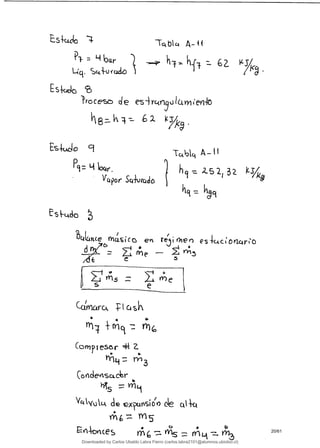 Estado 7
Tabla A-11
P7 = 4 bar
Liq. Saturado
→ h7 = hf7 = 62 KJ/kg.
Estado 8
Proceso de estrangulamiento
h8 = h7 = 62 KJ/kg.
Estado 9
Tabla A-11
P9 = 4 bar.
Vapor Saturado
h9 = 252,32 KJ/kg
h9 = hg9
Estado 3
Balance másico en régimen estacionario
dm/dt = Σ ṁe − Σ ṁs
Σ ṁs = Σ ṁe
Cámara Flash
ṁ7 + ṁ9 = ṁ6
Compresor # 2
ṁ4 = ṁ3
Condensador
ṁ5 = ṁ4
Valvula de expansión de alta
ṁ6 = ṁ5
Entonces ṁ6 = ṁ5 = ṁ4 = ṁ3
20/61
Downloaded by Carlos Ubaldo Labra Fierro (carlos.labra2101@alumnos.ubiobio.cl)